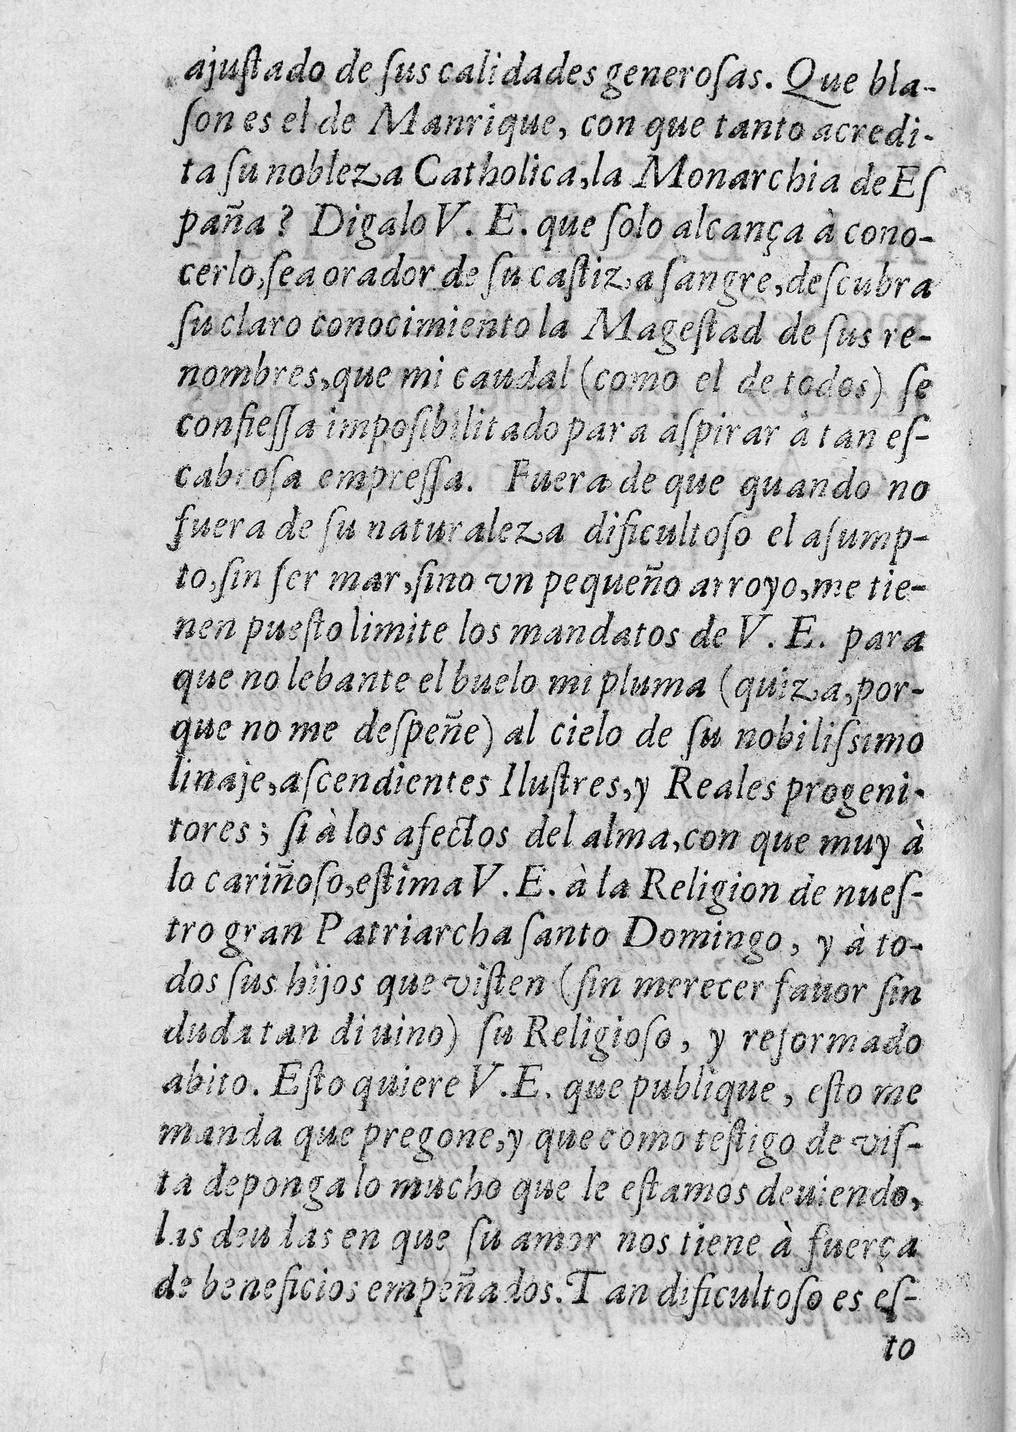 ajuſtado de ſus calidades generoſas. Que bla-
ſon es el de Manrique, con que tanto acredi-
ta ſu nobleza Catholica, la Monarchia de Eſ
paña? Digalo V. E. que ſolo alcança à cono-
cerlo, ſea orador de ſu caſtiza ſangre, deſcubra
ſu claro conocimiento la Mageſtad de ſus re-
nombres, que mi caudal (como el de todos) ſe
confieſſa impoſibilitado para aſpirar à tan eſ-
cabroſa empreſſa. Fuera de que quando no
fuera de ſu naturaleza dificultoſo el aſump-
to, ſin ſer mar, ſino vn pequeño arroyo, me tie-
nen pueſto limite los mandatos de V. E. para
que no lebante el buelo mi pluma (quiza, por-
que no me deſpeñe) al cielo de ſu nobiliſsimo
linaje, aſcendientes Iluſtres, y Reales progeni-
tores; ſi à los afectos del alma, con que muy à
lo cariñoſo, eſtima V. E. à la Religion de nueſ-
tro gran Patriarcha ſanto Domingo, y à to-
dos ſus hijos que viſten (ſin merecer fauor ſin
duda tan diuino) ſu Religioſo, y reformado
abito. Eſto quiere V. E. que publique, eſto me
manda que pregone, y que como teſtigo de viſ-
ta deponga lo mucho que le eſtamos deuiendo,
las deudas en que ſu amor nos tiene à fuerça
de beneficios empeñados. Tan dificultoſo es eſ-
to